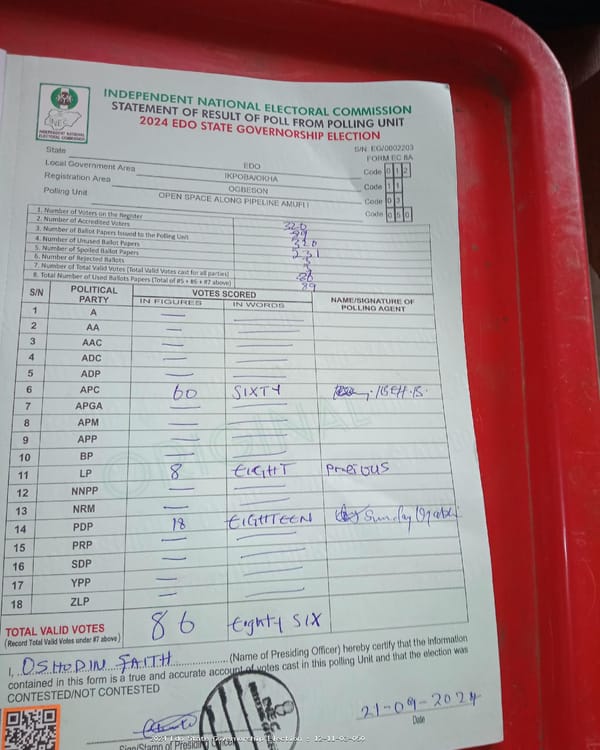 INDEPENDENT NATIONAL ELECTORAL COMMISSION
STATEMENT OF RESULT OF POLL FROM POLLING UNIT
2024 EDO STATE GOVERNORSHIP ELECTION
INEC
INDEPENDENT NATIONAL
ELECTORAL COMMISSION
S/N: EG/0002203
FORM EC 8A
State EDO Code 0 1 2
Local Government Area IKPOBA/OKHA Code 1 1
Registration Area OGBESON Code 0 3
Polling Unit OPEN SPACE ALONG PIPELINE AMUFLI Code 0 5 0
1. Number of Voters on the Register 320
2. Number of Accredited Voters 89
3. Number of Ballot Papers Issued to the Polling Unit 320
4. Number of Unused Ballot Papers 231
5. Number of Spoiled Ballot Papers
6. Number of Rejected Ballots
7. Number of Total Valid Votes (Total Valid Votes cast for all parties) 86
8. Total Number of Used Ballots Papers (Total of #5 + #6 + #7 above) 89
S/N POLITICAL PARTY VOTES SCORED NAME/SIGNATURE OF POLLING AGENT
IN FIGURES IN WORDS
1 A — —
2 AA — —
3 AAC — —
4 ADC — —
5 ADP — —
6 APC 60 SIXTY
7 APGA — —
8 APM — —
9 APP — —
10 BP — —
11 LP 8 EIGHT Precious
12 NNPP — —
13 NRM — —
14 PDP 18 EIGHTEEN Sunday
15 PRP — —
16 SDP — —
17 YPP — —
18 ZLP — —
ORIGINAL
TOTAL VALID VOTES 86 Eighty SIX
(Record Total Valid Votes under #7 above)
I, OSHODIN FAITH (Name of Presiding Officer) hereby certify that the information
contained in this form is a true and accurate account of votes cast in this polling Unit and that the election was
CONTESTED/NOT CONTESTED
21-09-2024
Date
Sign/Stamp of Presiding Officer
2024 Edo State Governorship Election - 12-11-03-050